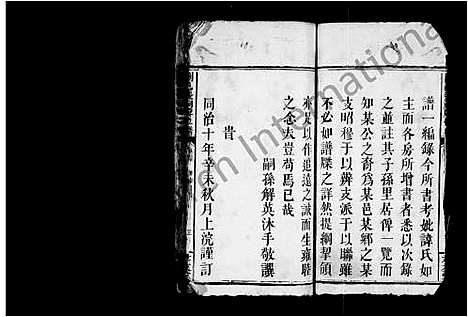 譜一編錄今所書考妣諱氏如
主而各房所增書者悉以次錄
之並註其子孫里居俾一覽而
知某公之裔爲某邑某鄉之某
支昭穆于以辨支派于以聯雖
不必如譜牒之詳然提綱挈領
亦足以作追遠之誠而生雍睦
之念夫豈苟焉已哉
嗣孫解英沐手敬譔
旹
同治十年辛未秋月上浣謹訂
International